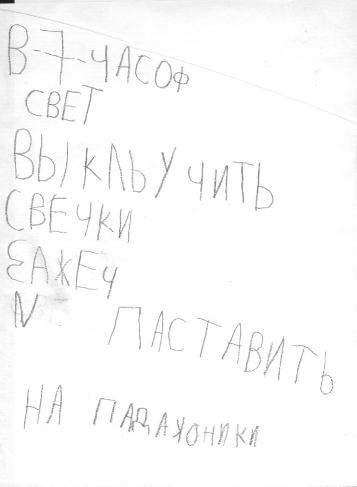 В-7-ЧАСОФ
СВЕТ
ВЫКЛЬУЧИТЬ
СВЕЧКИ
ЗАЖЕЧ
И ПАСТАВИТЬ
НА ПАДАКОНИКИ